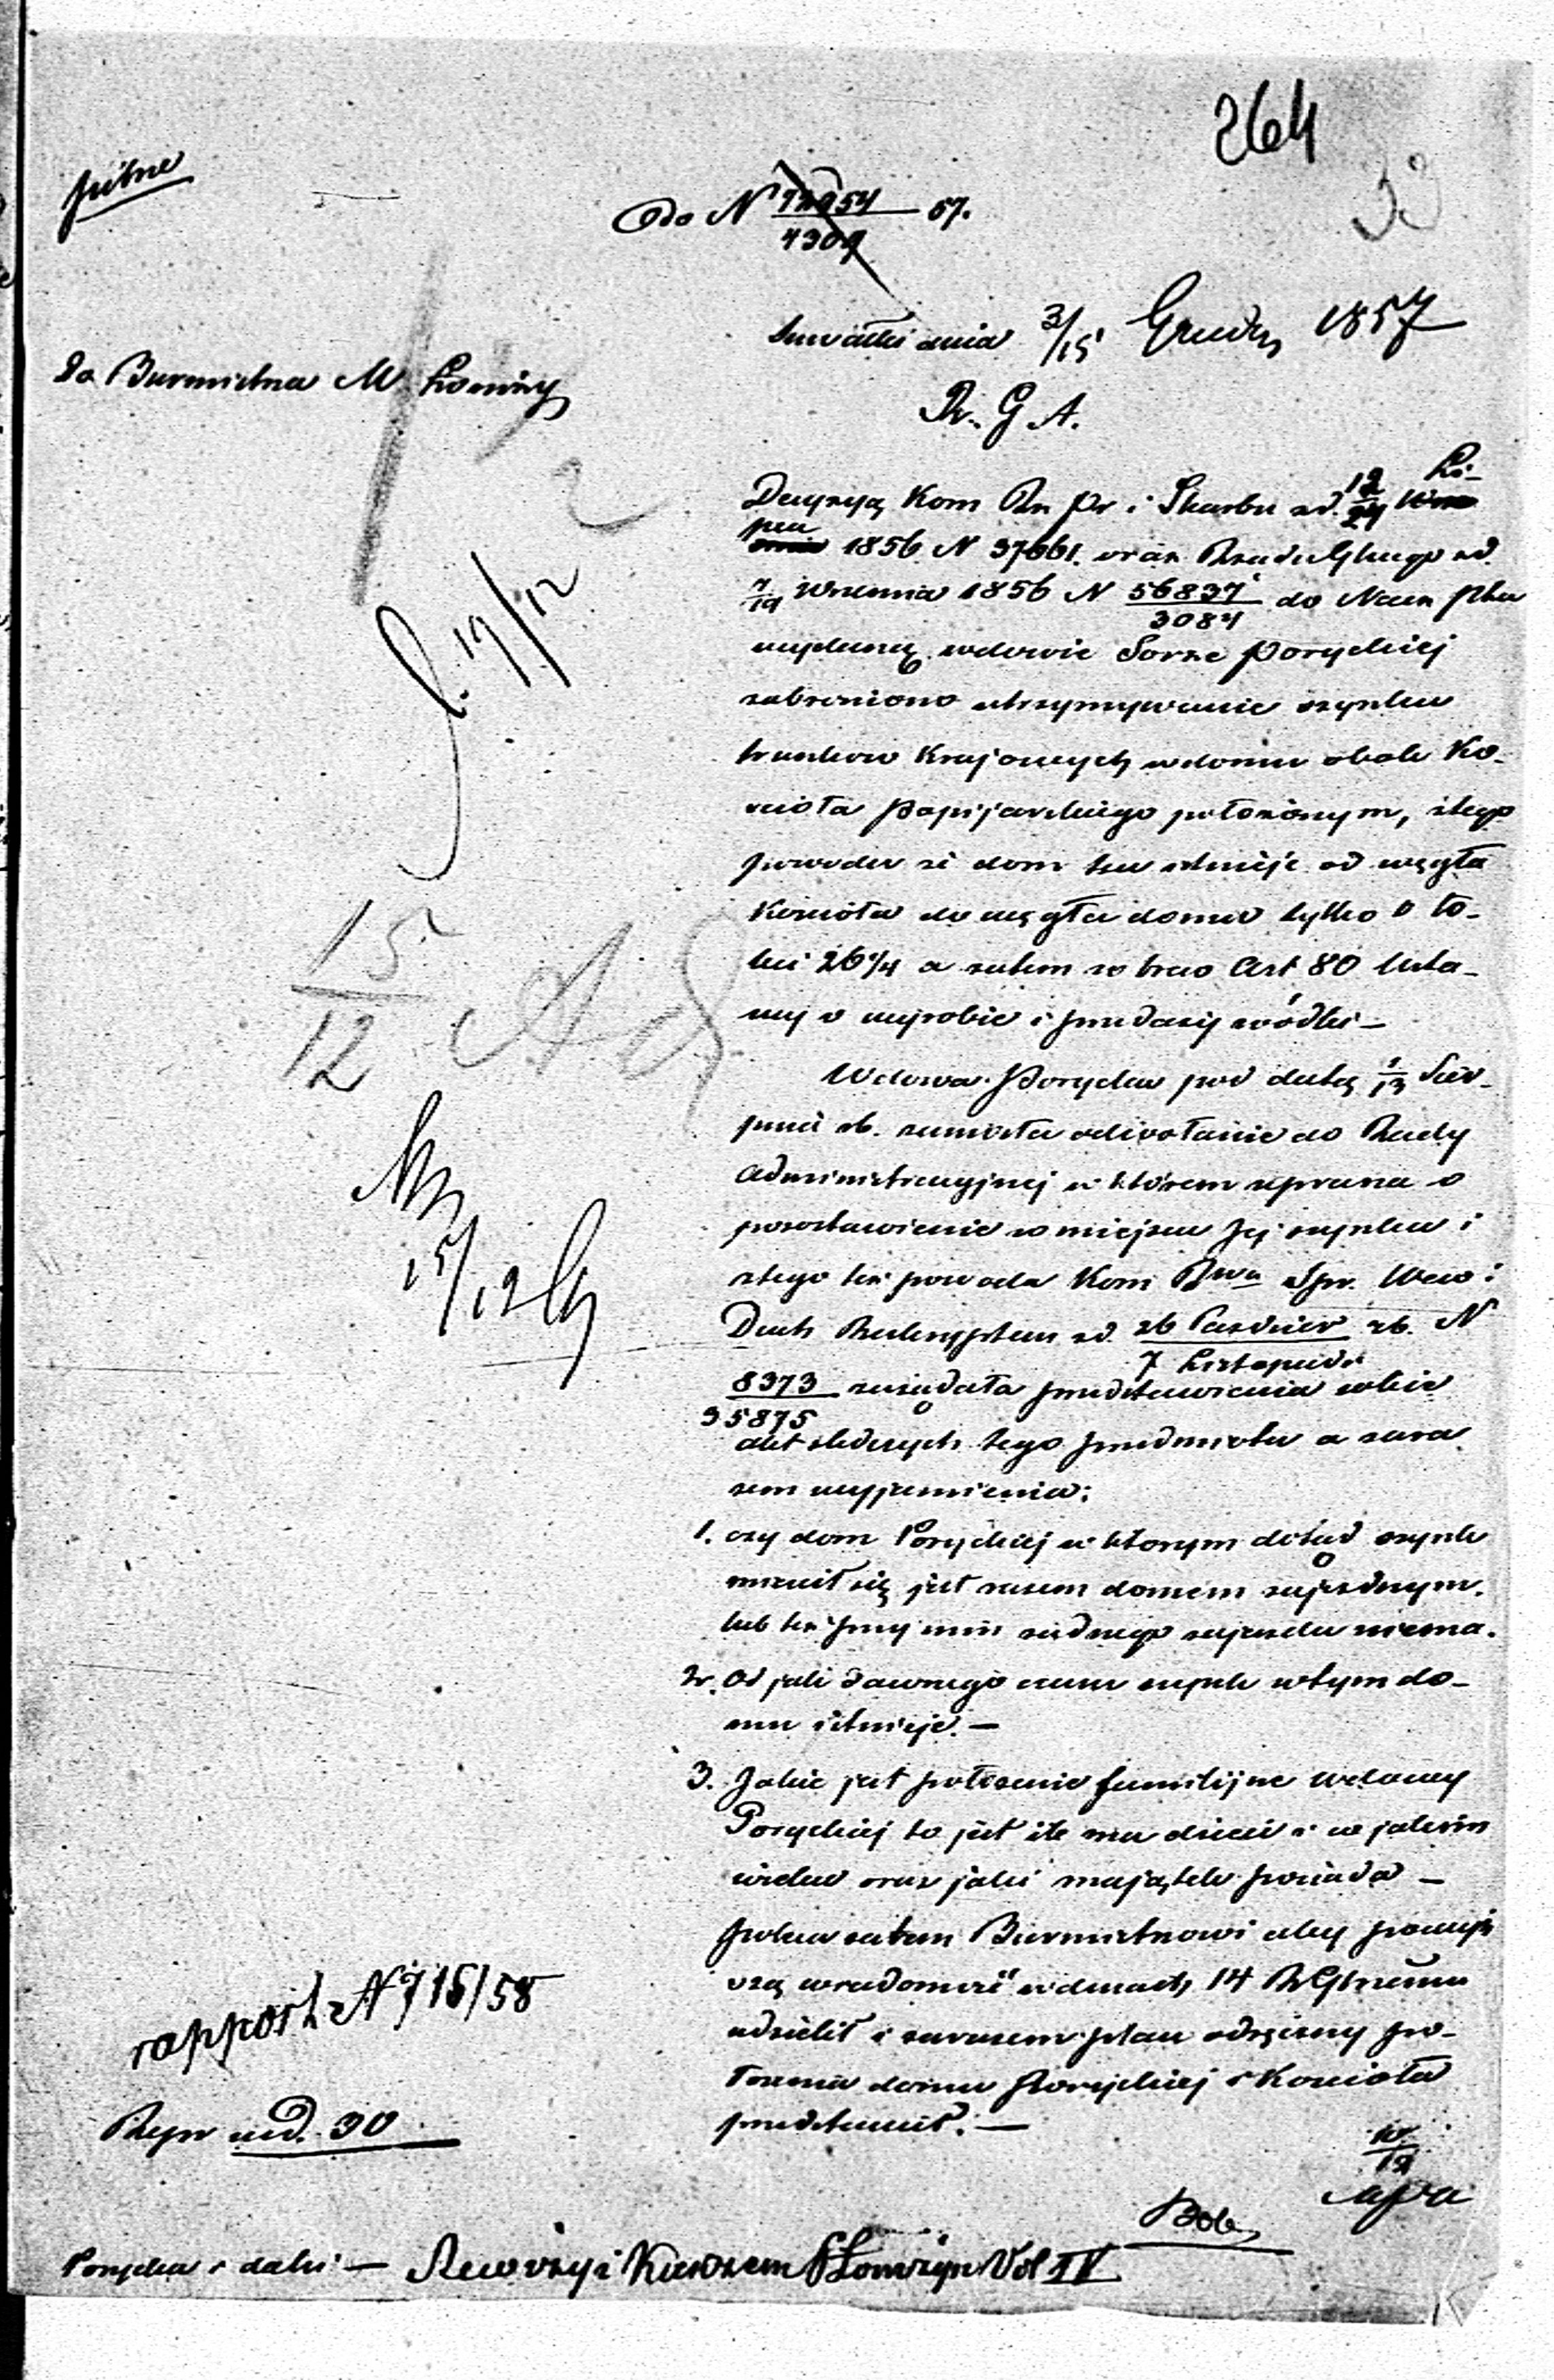 264
pilne
Do N 12954/4309 57.
Suwałki dnia 3/15 Grudn 1857
Do Burmistrza M. Łomży
R. G A.
Decyzyą Kom Rz Pr i Skarbu z d. 12/24 Li-
pca 1856 N 37661. oraz Rządu Glnego z d.
7/19 Września 1856 N 56837/3084 do Nacz Ptu
wydaną wdowie Sorze Poryckiej
zabroniono utrzymywanie szynku
trunków Krajowych w domu obok Ko-
ścioła Popijarskiego położonym, z tego
powodu że dom ten istnieje od węgła
Kościoła do węgła domu tylko o ło-
kci 26 1/4 a zatem wbrew Art 80 Usta-
wy o wyrobie i przedaży wódki –
Wdowa Porycka pod datą 1/13 Sier-
pnia rb. zaniosła odwołanie do Rady
Administracyjnej w którem uprasza o
pozostawienie w miejscu Jej szynku i
z tego też powodu Kom Rwa Spr. Wew i
Duch Reskryptem z d. 26 Paździer/7 Listopada rb. N
8373/35875 zażądała przedstawienia sobie
akt śledczych tego przedmiotu a zara
zem wyjaśnienia:
1. czy dom Poryckiej w którym dotąd szynk
mieścił się jest razem domem zajezdnym.
lub też przy nim żadnego zajazdu niema.
2. Od jak dawnego czasu szynk w tym do-
mu istnieje. –
3. Jakie jest położenie familijne wdowy
Poryckiej to jest ile ma dzieci i w jakim
wieku oraz jaki majątek posiada –
Poleca zatem Burmistrzowi aby powyż
szą wiadomość w dniach 14 R Glnemu
udzielił i zarazem plan odręczny po-
łożenia domu Poryckiej i Kościoła
przedstawił. –
19/12
15/12
15/12
rapport N 715/58
Repr ned. 30
Porycka i dalsi – Rewizyi Karczem Łomżyn Vol IV